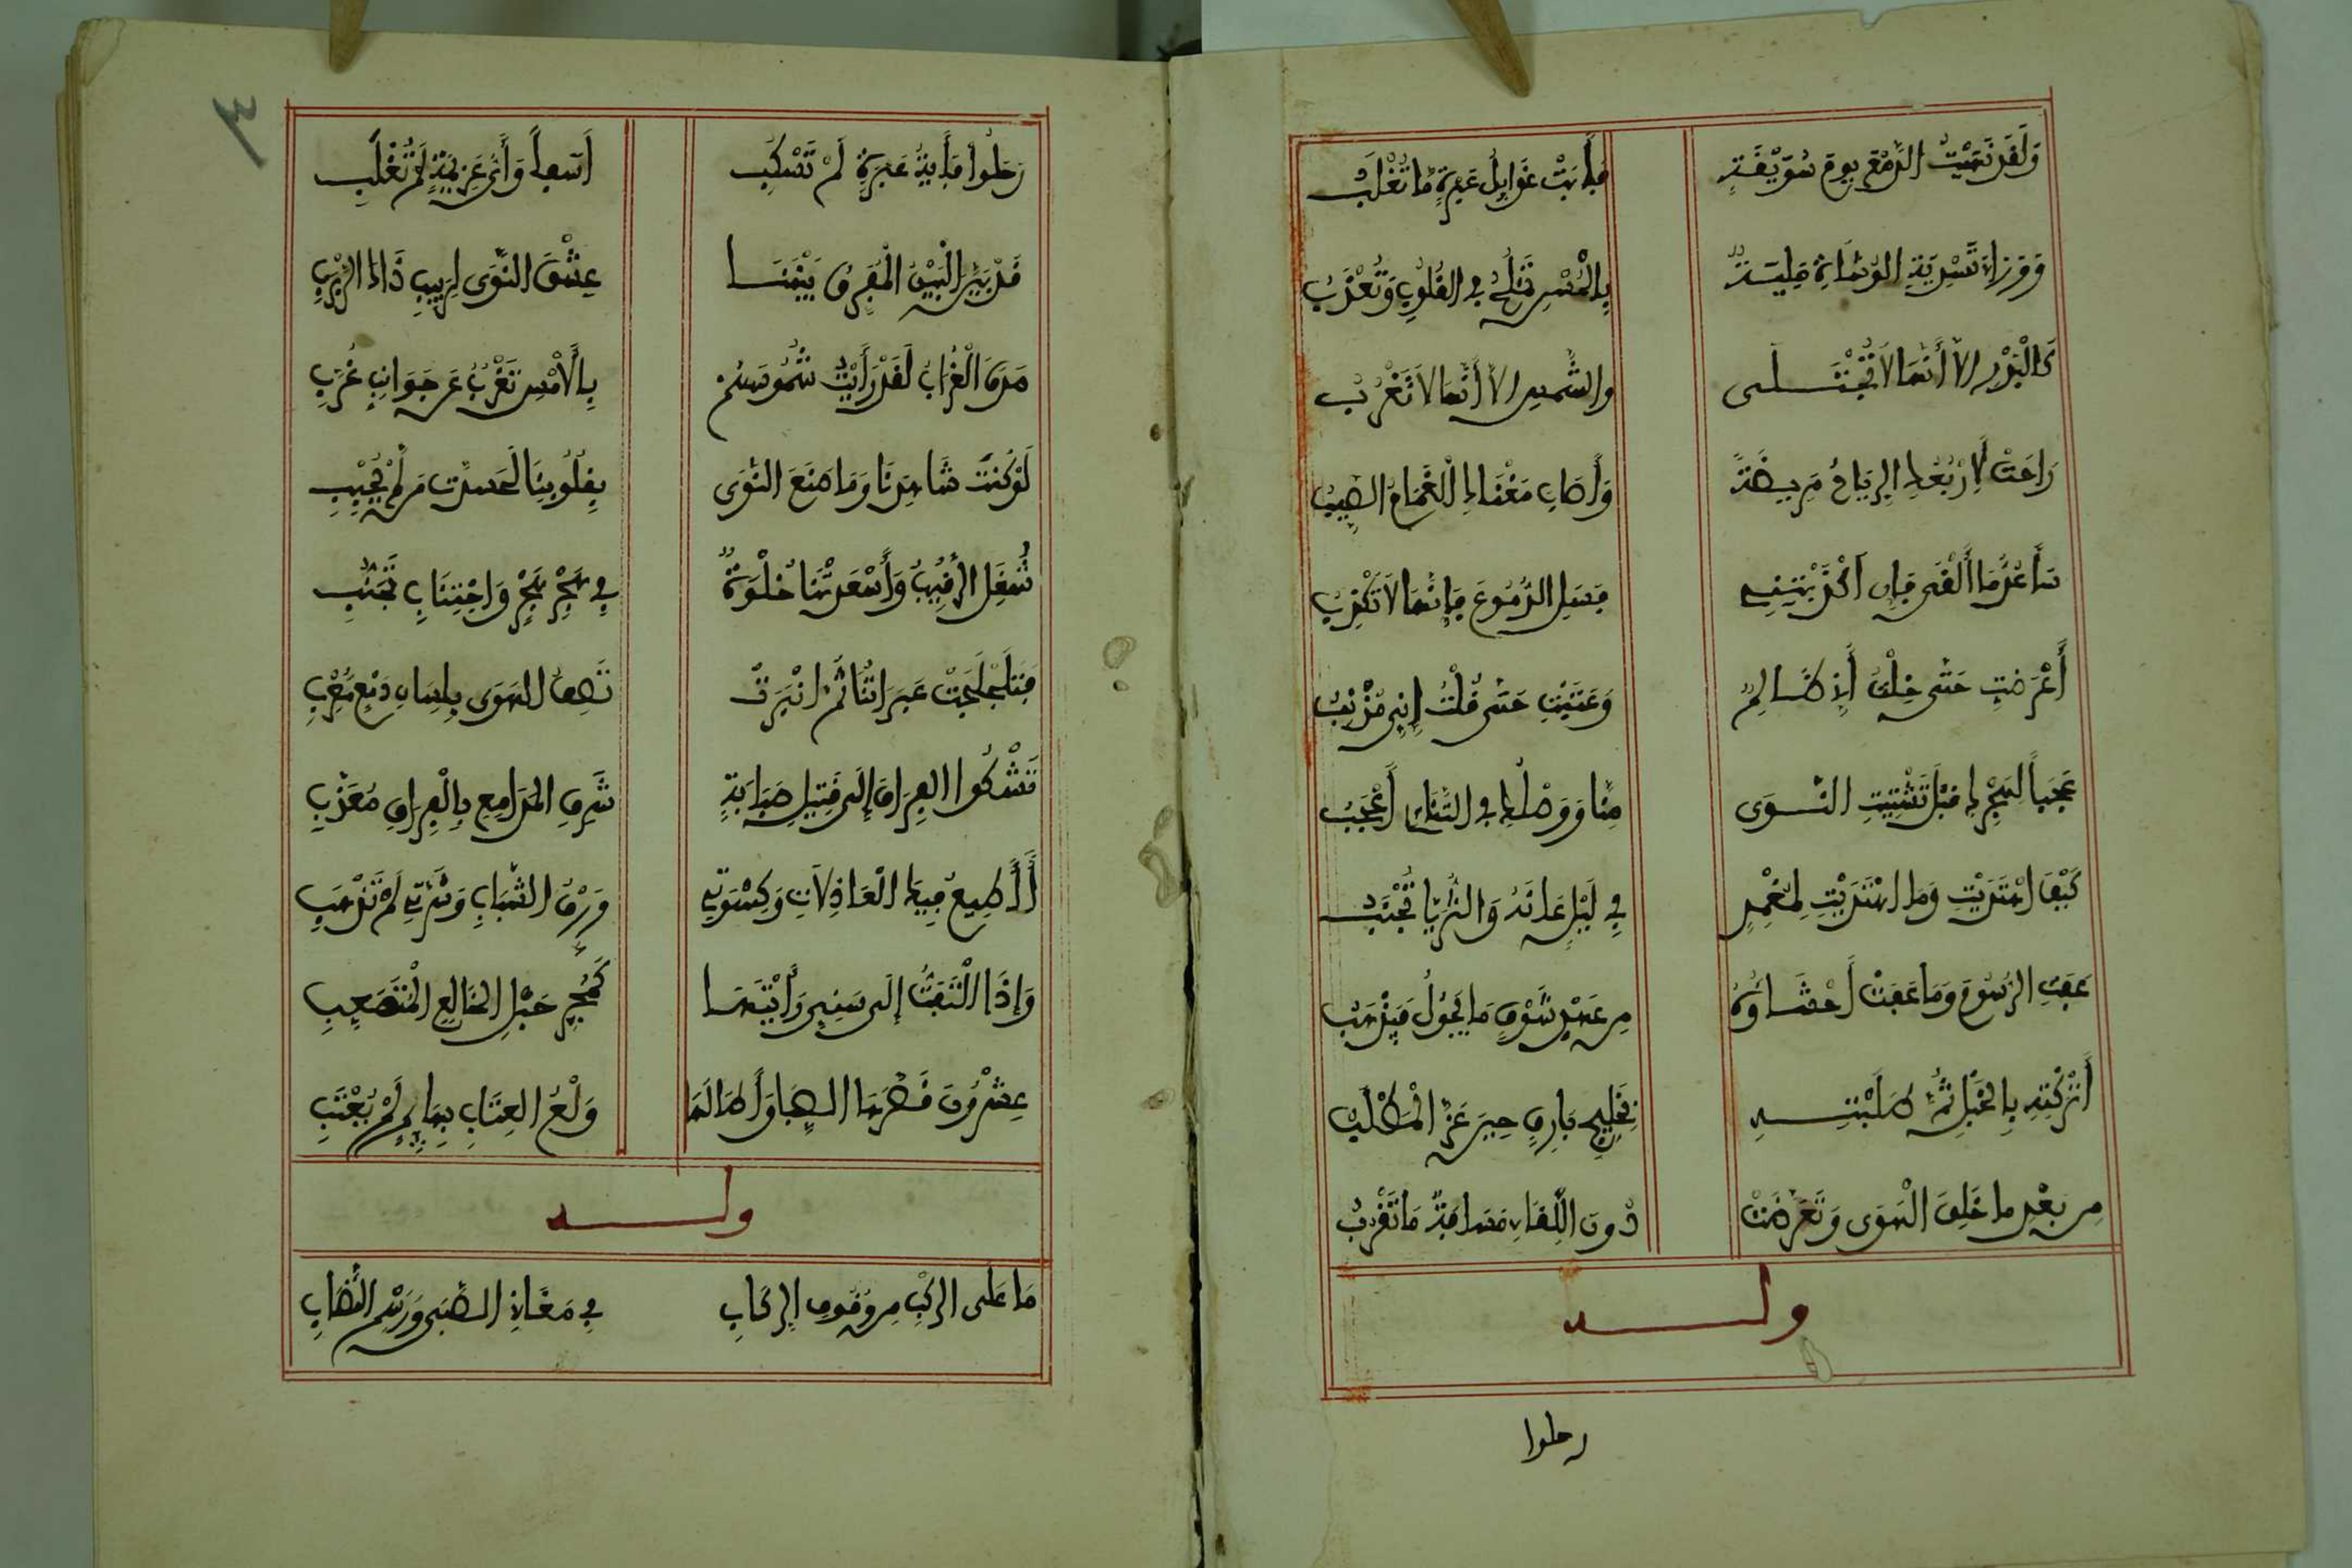 وَلَقَد نَهَيْتُ الدَّمْعَ يومَ سُوَيْقَةٍ فَأَبَتْ غَوَالِبُ عَبْرَةٍ مَا تُغْلَبُ
وَوَرَاءَ تَسْدِيَةِ الوُشَاةِ مَلِيَّةٌ بِالْحُسْنِ تَمْلُحُ فِي القُلُوبِ وَتُعْذَبُ
كَالْبَدْرِ إلاّ أَنّهَا لاَ تُجْتَلَى والشَّمسِ إلاّ أَنّهَا لاَ تَغْرُبُ
رَاحَتْ لِأَرْبُعِكِ الرِيَاحُ مَرِيضَةً وَأَصَابَ مَغْنَاكِ الْغَمَامُ الصَيِّبُ
سَأَعُدُّ مَا أَلْقَى فَإِن كَذَّبْتِنِي فَسَلِ الدُّمُوعَ فَإِنَّهَا لاَ تَكْذِبُ
أَعْرَضْتِ حَتّى خِلْتُ أَنِّي ظَالِمٌ وَعَتَبْتِ حَتّى قُلْتُ إِنِّي مُذْنِبُ
عَجَباً لِهَجْرِكِ قَبْلَ تَشْتِيتِ النَّوَى مِنّا وَوَصْلُكِ فِي التَّنَائِي أَعْجَبُ
كَيْفَ اهْتَدَيْتِ وَمَا اهْتَدَيْتِ لِمُغْمِدٍ فِي لَيْلِ عَانَةَ وَالثُّرَيَّا تُجْنَبُ
عَفَتِ الرُسُومُ وَمَا عَفَتْ أَحْشَاؤُهُ مِن عَهْدِ شَوْقٍ مَا يَحُولُ فَيَذْهَبُ
أَتَرَكْتِهِ بِالحَبْلِ ثُمَّ طَلَبْتِهِ بِخَلِيجِ بَارِقٍ حيثُ عَزَّ الْمَطْلَبُ
مِن بَعْدِ ما خَلِقَ الْهَوَى وَتَعَرَّضَتْ دُونَ اللِّقَاءِ مَسَافَةٌ مَا تَقْرُبُ
ولـــه
رحلوا
٣
رَحَلُوا فَأَيَّةُ عَبْرَةٍ لَمْ تَسْكَبِ أَسَفاً وَأَيُّ عَزِيمَةٍ لَمْ تُغْلَبِ
قَدْ بَيَّنَ الْبَيْنُ الْمُفَرِّقُ بَيْنَنَا عِشْقَ النَّوَى لِرَبِيبِ ذَاكَ الرَّبْرَبِ
صَدَقَ الْغُرَابُ لَقَدْ رَأَيْتُ شُمُوسَهُمْ بِالأَمْسِ تَغْرُبُ عَن جَوَانِبِ غُرَّبِ
لَوْ كُنتَ شَاهِدَنَا وَمَا صَنَعَ النَّوَى بِقُلُوبِنَا لَحَسَدتَ مَن لَمْ يُحْبِبِ
شُغِلَ الرَقِيبُ وَأَسْعَدَتْنَا خَلْوَةٌ فِي هَجْرِ هَجْرٍ وَاجْتِنَابِ تَجَنُّبِ
فَتَلَجْلَجَتْ عَبَرَاتُنَا ثُمَّ انْبَرَتْ تَصِفُ الهَوَى بِلِسَانِ دَمْعٍ مُعْرِبِ
تَشْكُوا الفِرَاقَ إِلَى قَتِيلِ صَبَابَةٍ شَرِقِ المَدَامِعِ بِالْفِرَاقِ مُعَذَّبِ
أَأُطِيعُ فِيكِ الْعَاذِلاَتِ وَكِسْوَتِي وَرَقُ الشَّبَابِ وَشِرَّتِي لَمْ تَذْهَبِ
وَإِذَا الْتَفَتُّ إِلَى سَنِيَّ رَأَيْتُهَا كَمَجَرِّ حَبْلِ الخَالِعِ الْمُتَصَعِّبِ
عِشْرُونَ قَصَّرَهَا الصِبَا وَأَطَالَهَا وَلْعُ العِتَابِ بِهَائِمٍ لَمْ يُعْتَبِ
ولـــه
مَا عَلَى الرَكْبِ مِن وُقُوفِ الرِكَابِ فِي مَغَانِي الصِّبَى وَرَسْمِ التَّصَابِ